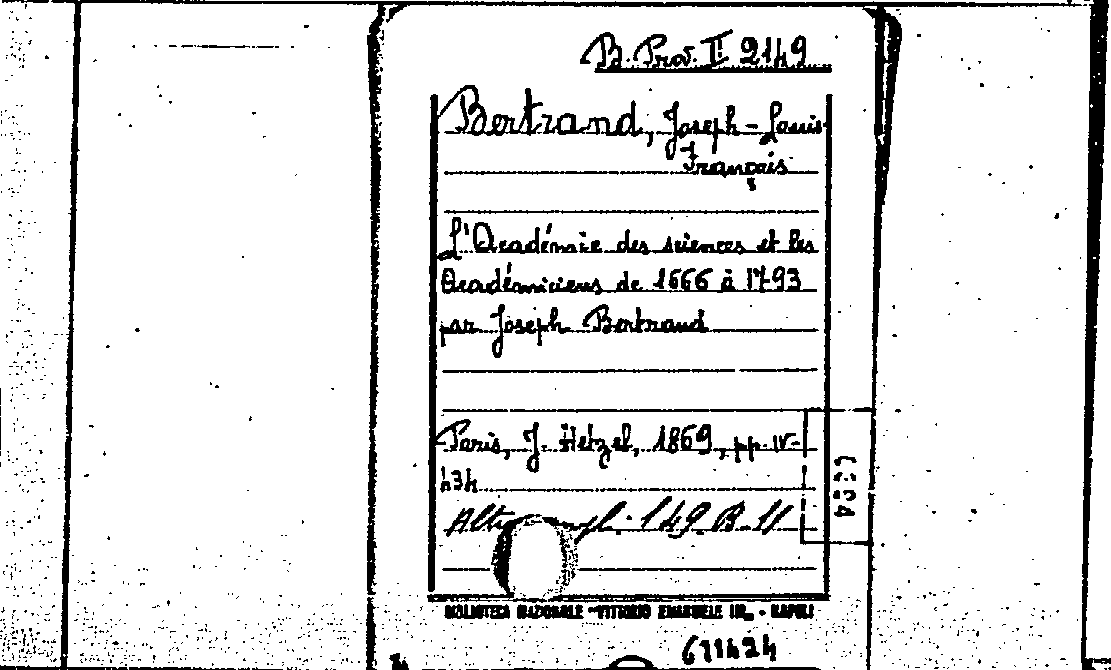 B. Prov. II 2149
Bertrand, Joseph-Louis-
François
L'Académie des sciences et les
Académiciens de 1666 à 1793
par Joseph Bertrand
Paris, J. Hetzel, 1869, pp. IV-
434
149 B 11
BIBLIOTECA NAZIONALE "VITTORIO EMANUELE III" - NAPOLI
671424